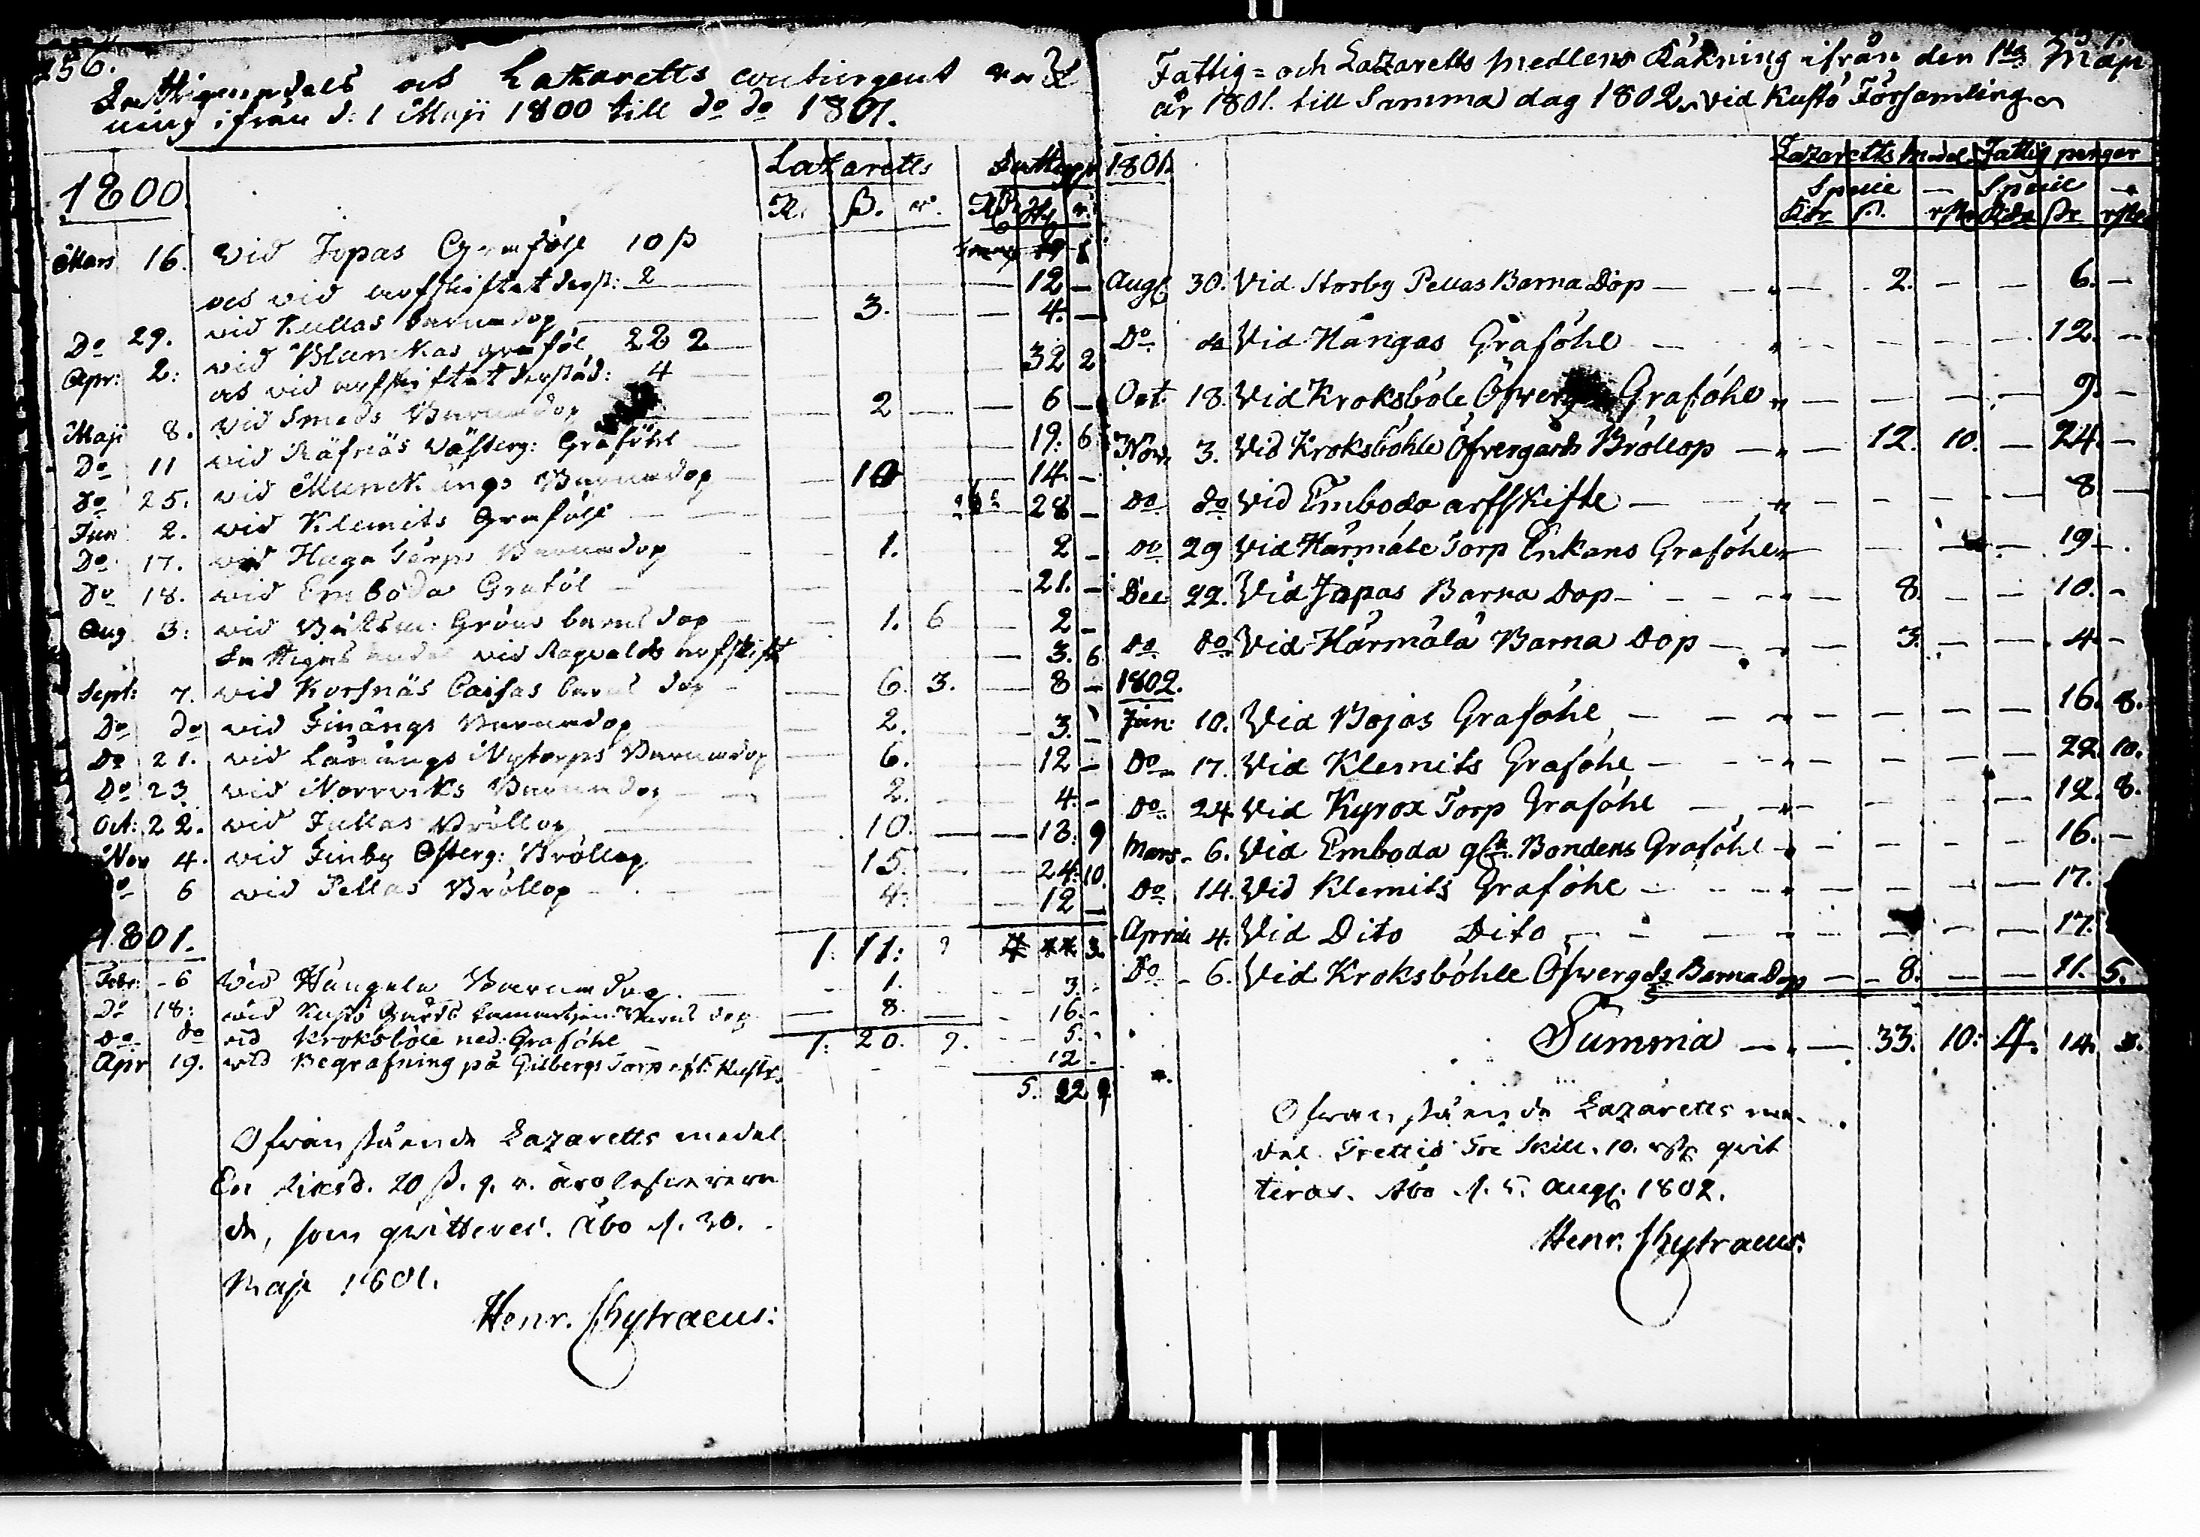 256.
Fattigmedels och Lazaretts contingent
ning ifrån d: 1 Maji 1800 till do do 1801.
Lazaretts Fattigp
1800.
R. ß. r. Rd ß r.
Mars 16. vid Jopas Grafföhl 10 ß
och vid arfskiftet derst: 2 — 12 —
Do 29. vid Kullas barnadop — 3. — 4. —
Apr: 2: vid Blanckas grafföl 28 2
och vid arfskiftet derstäd: 4 — 32 2
Maji 8. vid Smeds Barnadop — 2 — 6 —
Do 11 vid Räfsnäs Västerg: Grafföhl — 19. 6
Do 25. vid Munck ängs Barnadop — 10 — 14. —
Jun 2. vid Klemits Grafföhl — 28 —
Do 17. vid Haga Torps Barnadop — 1. — 2 —
Do 18. vid Emboda Grafföl — 21. —
Aug 3: vid Båtsm: Gröns barns dop — 1. 6 — 2 —
Fattigmedel vid Ragvalds arfskifte — 3. 6.
Sept: 7. vid Korsnäs Caisas barns dop — 6. 3. — 8 —
Do do vid Finängs Barnadop — 2. — 3. —
Do 21. vid Långängs Nytorps Barnadop — 6. — 12 —
Do 23 vid Norrviks Barnadop — 2. — 4. —
Oct: 22. vid Jullas Bröllop — 10. — 13. 9
Nov 4. vid Finby Österg: Bröllop — 15. — 24: 10.
Do 6 vid Pellas Bröllop — 4. — 12 —
1801. 1. 11: 9
Febr: - 6 vid Hangela Barnadop. — 1. — 3. -
Do 18: vid Kustö Gårds Barns dop — 8. — 16. -
Do do vid Kroksböle ned: Grafföhl — 1. 20. 9. — 5. -
Apr 19. vid Begrafning på Gisbergs Torp — 12 -
5. 22 9
Ofvanstående Lazaretts medel
En Riksd. 20 ß. 9. r. äro
de, som qvitteres. Åbo d. 30.
Maji 1801.
Henr. Chytraeus:
Fattig= och Lazaretts Medlens Räkning ifrån den 1sta Maji
år 1801. till Samma dag 1802. vid Kustö Församling
1801. Lazaretts Medel. Fattig penger
Specie — Specie —
Rdr ß. rst Rdr ß. rst
Aug: 30. Vid Storby Pellas Barna Dop — 2. — — 6. —
Do do Vid Hangas Graföhl — 12. —
Oct. 18. Vid Kroksböle Öfverg Graföhl — 9. —
Nov. 3. Vid Kroksböhle Öfvergårds Bröllop — 12. 10. — 24. —
Do do Vid Emboda arfskifte — 8 —
Do 29 Vid Harmåla Torp Enkans Graföhl — 19 —.
Dec 22. Vid Jopas Barna Dop — 8. — — 10. —
Do do Vid Harmåla Barna Dop — 3. — — 4 —
1802.
Jan: 10. Vid Bojas Graföhl — 16. 8.
Do 17. Vid Klemits Graföhl — 22 10.
Do 24 Vid Kyrox Torp Graföhl — 12. 8.
Mars - 6. Vid Emboda Bondens Graföhl — 16. —
Do 14. Vid Klemits Graföhl — 17.
April 4. Vid Dito Dito — 17.
Do - 6. Vid Kroksböhle Öfvergds Barna Dop — 8. — — 11. 5.
Summa — 33. 10: 4. 14. 3.
Ofvanstående Lazaretts me-
del Trettio Tre Skill. 10. rst qvit
teras. Åbo d. 5. Aug: 1802.
Henr. Chytraeus: